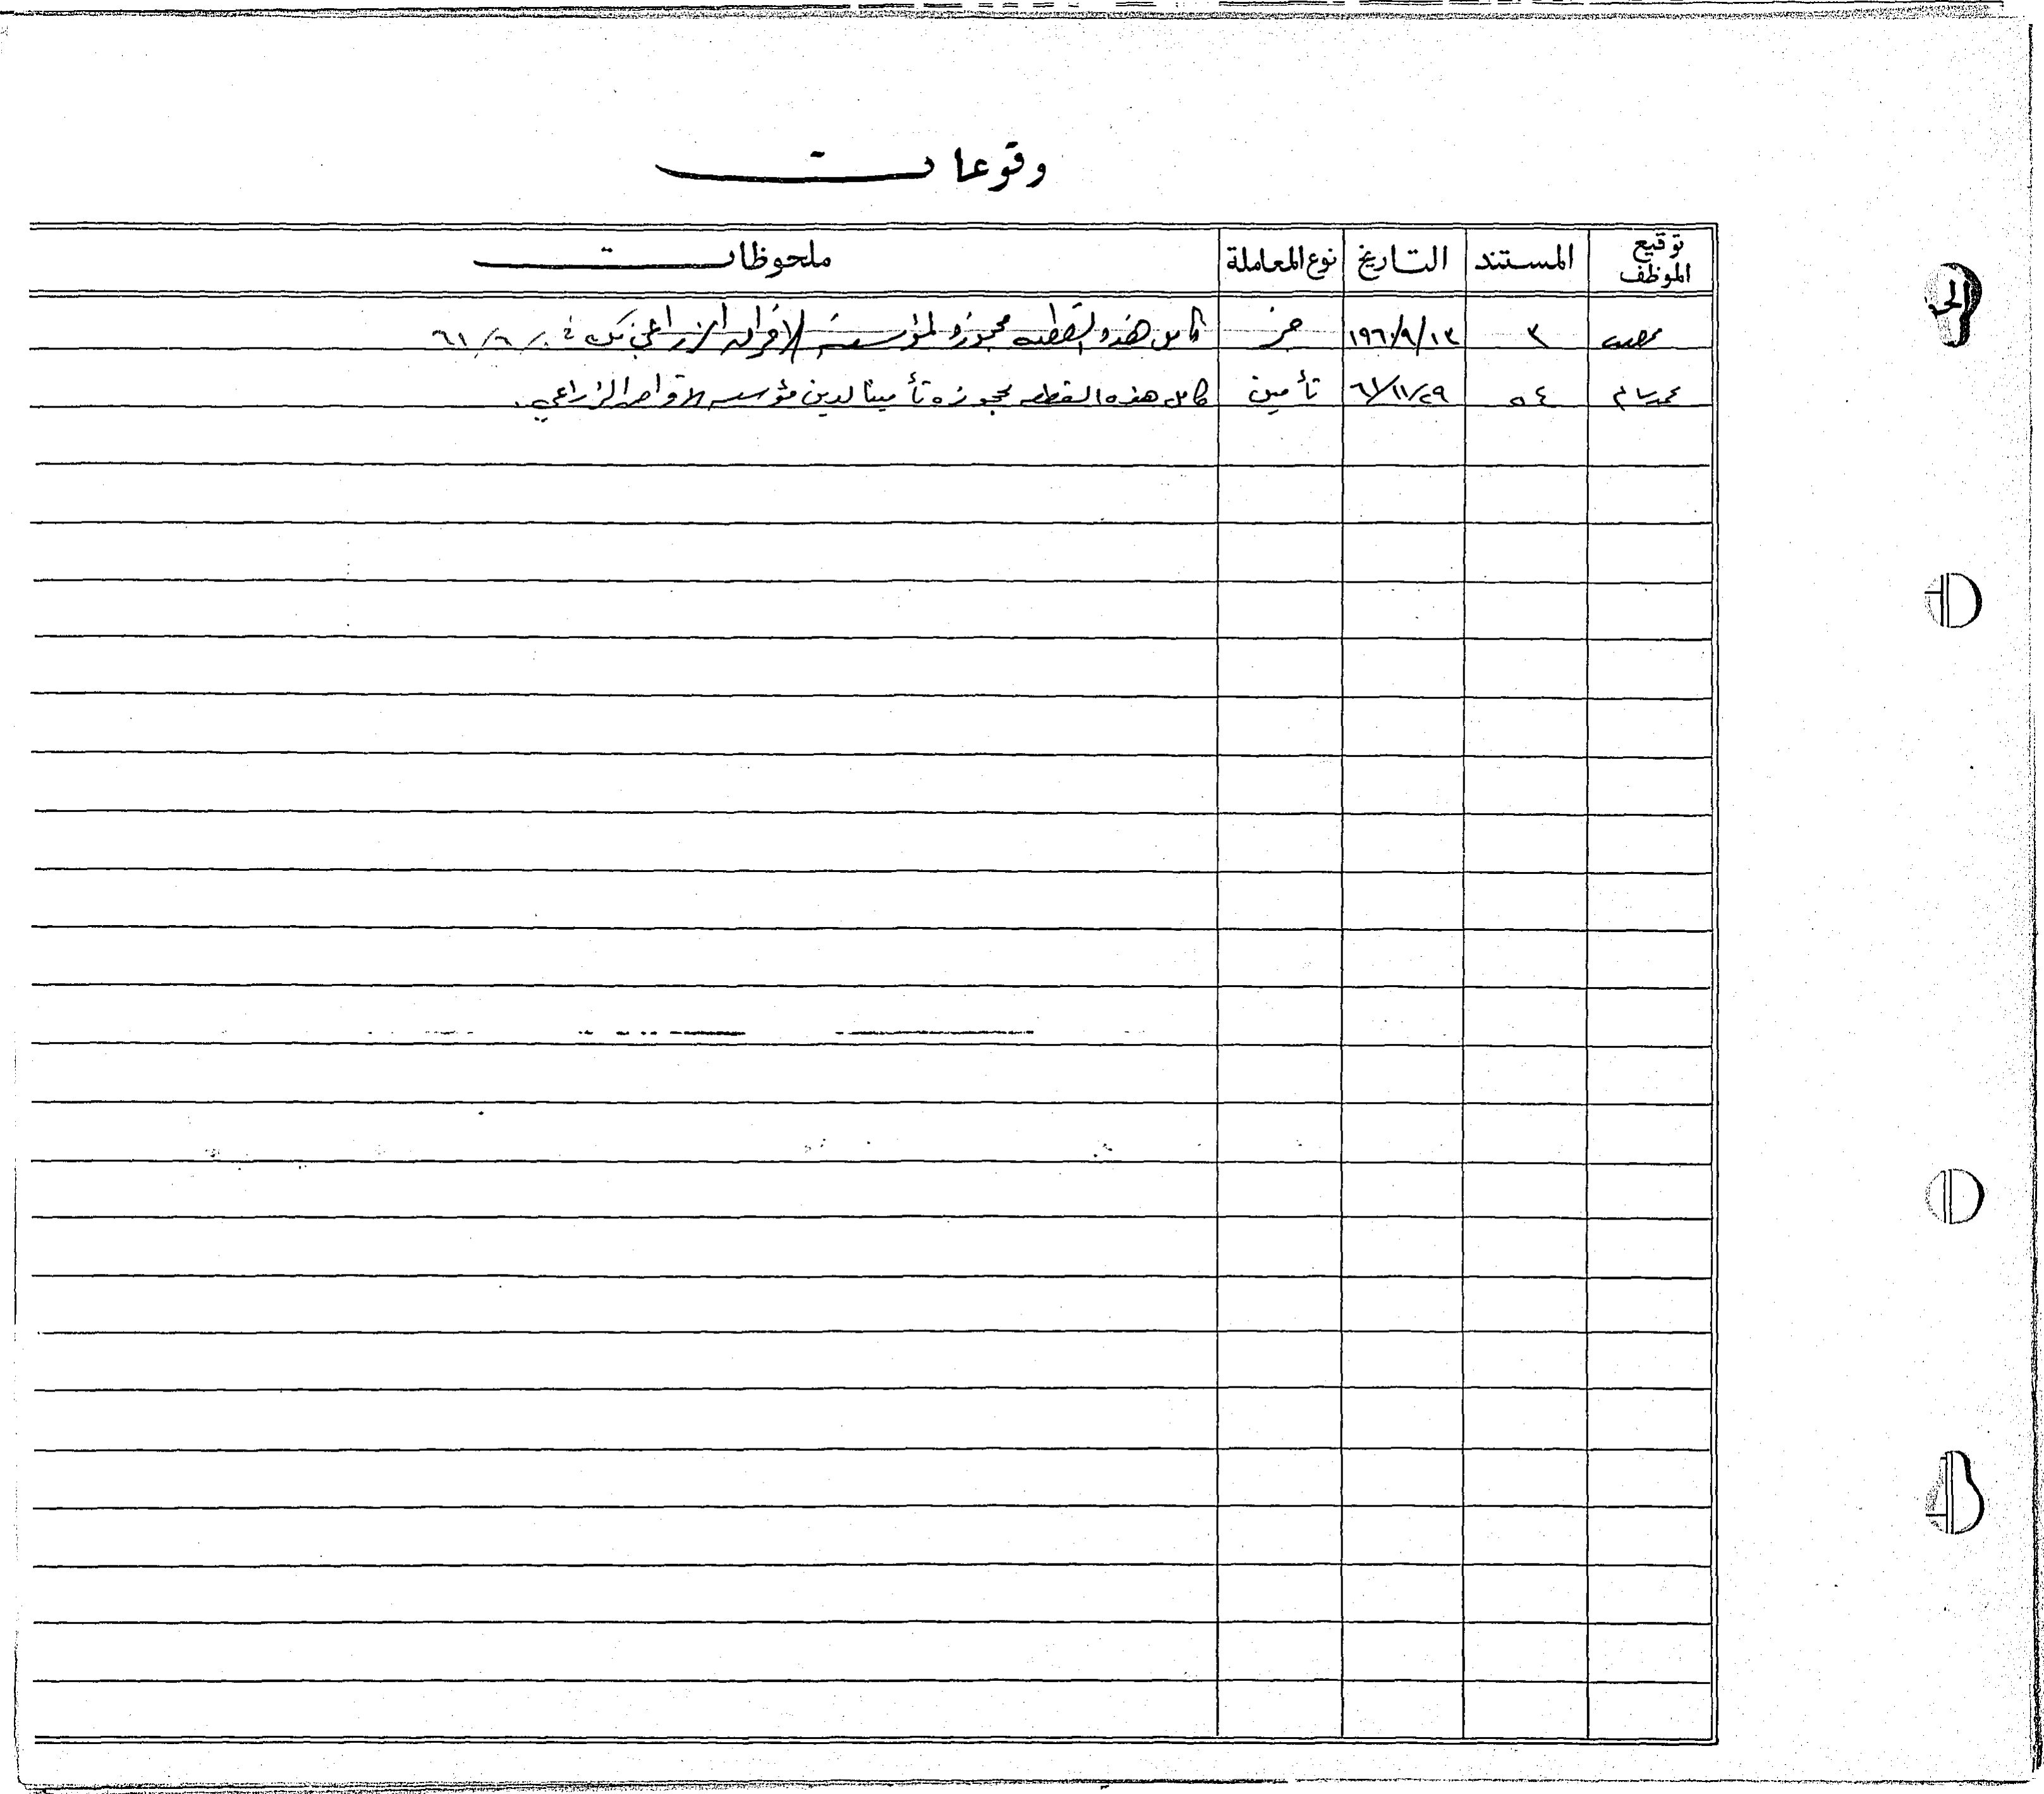 وقوعات
توقيع الموظف المستند التاريخ نوع المعاملة ملحوظات
٣ ١٩٦١/٩/١٣ حجز كامل هذه القطعه محجوزه لمؤسسة الاقراض الزراعي
محمد سالم ٥٤ ٦١/١١/٢٩ تأمين كامل هذه القطعه محجوزه تأمينا لدين مؤسسه الاقراض الزراعي.